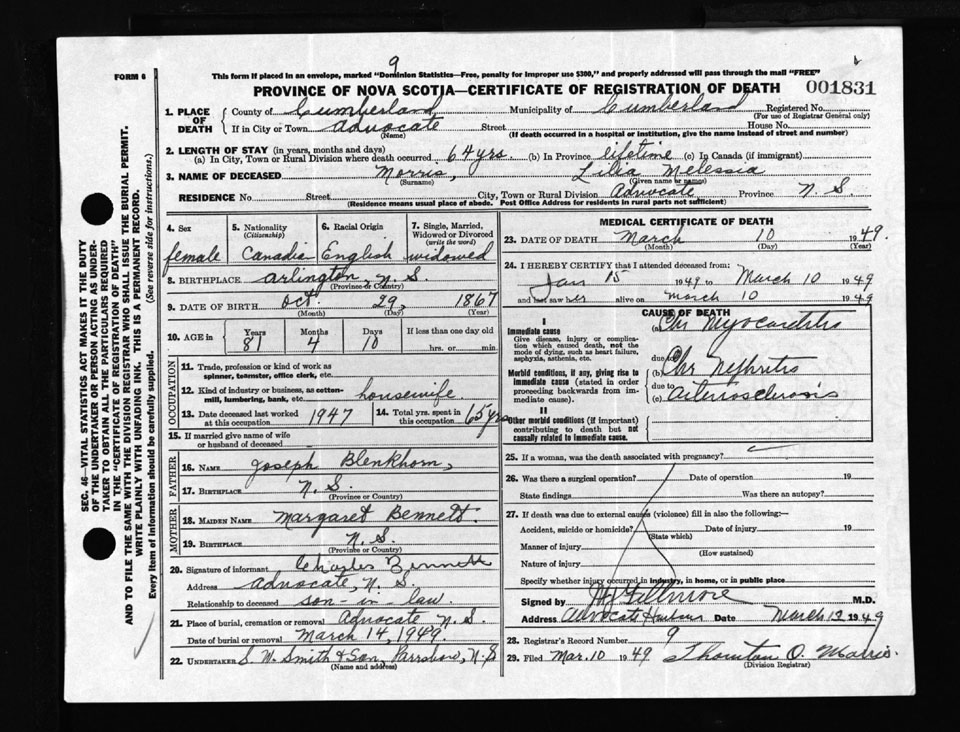 9
FORM 6
This form if placed in an envelope, marked "Dominion Statistics—Free, penalty for improper use $300," and properly addressed will pass through the mail "FREE"
PROVINCE OF NOVA SCOTIA—CERTIFICATE OF REGISTRATION OF DEATH 001831
1. PLACE OF DEATH County of Cumberland Municipality of Cumberland Registered No.
(For use of Registrar General only)
If in City or Town Advocate Street House No.
(Name) (If death occurred in a hospital or institution, give the name instead of street and number)
2. LENGTH OF STAY (in years, months and days)
(a) In City, Town or Rural Division where death occurred 64 yrs. (b) In Province lifetime (c) In Canada (if immigrant)
3. NAME OF DECEASED Morris, Lilia Melessia
(Surname) (Given name or names)
RESIDENCE No. Street City, Town or Rural Division Advocate Province N. S.
(Residence means usual place of abode. Post Office Address for residents in rural parts not sufficient)
4. Sex 5. Nationality (Citizenship) 6. Racial Origin 7. Single, Married, Widowed or Divorced (write the word)
female Canadian English widowed
8. BIRTHPLACE Arlington N. S.
(Province or Country)
9. DATE OF BIRTH Oct. 29, 1867
(Month) (Day) (Year)
10. AGE in Years Months Days If less than one day old
81 4 10 hrs. or min.
OCCUPATION
11. Trade, profession or kind of work as spinner, teamster, office clerk, etc.
12. Kind of industry or business, as cotton-mill, lumbering, bank, etc. housewife.
13. Date deceased last worked at this occupation 1947 14. Total yrs. spent in this occupation 65 yrs
15. If married give name of wife or husband of deceased
FATHER
16. NAME Joseph Blenkhorn,
17. BIRTHPLACE N. S.
(Province or Country)
MOTHER
18. MAIDEN NAME Margaret Bennett.
19. BIRTHPLACE N. S.
(Province or Country)
20. Signature of informant Charles Bennett
Address Advocate, N. S.
Relationship to deceased son-in-law.
21. Place of burial, cremation or removal Advocate N. S.
Date of burial or removal March 14, 1949.
22. UNDERTAKER S. W. Smith & Son, Parrsboro, N. S
(Name and address)
MEDICAL CERTIFICATE OF DEATH
23. DATE OF DEATH March 10 1949.
(Month) (Day) (Year)
24. I HEREBY CERTIFY that I attended deceased from:
Jan 15 1949 to March 10 1949
and last saw her alive on March 10 1949
CAUSE OF DEATH
I
Immediate cause
Give disease, injury or complication which caused death, not the mode of dying, such as heart failure, asphyxia, asthenia, etc.
(a) Chr Myocarditis
due to
Morbid conditions, if any, giving rise to immediate cause (stated in order proceeding backwards from immediate cause).
(b) Chr Nephritis
due to
(c) Arteriosclerosis
II
Other morbid conditions (if important) contributing to death but not causally related to immediate cause.
25. If a woman, was the death associated with pregnancy?
26. Was there a surgical operation? Date of operation 19
State findings Was there an autopsy?
27. If death was due to external causes (violence) fill in also the following:—
Accident, suicide or homicide? Date of injury 19
(State which)
Manner of injury
(How sustained)
Nature of injury
Specify whether injury occurred in industry, in home, or in public place
Signed by Fillmore M.D.
Address Advocate Harbour Date March 13 1949
28. Registrar's Record Number 9
29. Filed Mar. 10 1949 Thornton O. Morris.
(Division Registrar)
SEC. 46—VITAL STATISTICS ACT MAKES IT THE DUTY
OF THE UNDERTAKER OR PERSON ACTING AS UNDER-
TAKER TO OBTAIN ALL THE PARTICULARS REQUIRED
IN THE "CERTIFICATE OF REGISTRATION OF DEATH"
AND TO FILE THE SAME WITH THE DIVISION REGISTRAR WHO SHALL ISSUE THE BURIAL PERMIT.
WRITE PLAINLY WITH UNFADING INK. THIS IS A PERMANENT RECORD.
Every item of information should be carefully supplied. (See reverse side for instructions.)